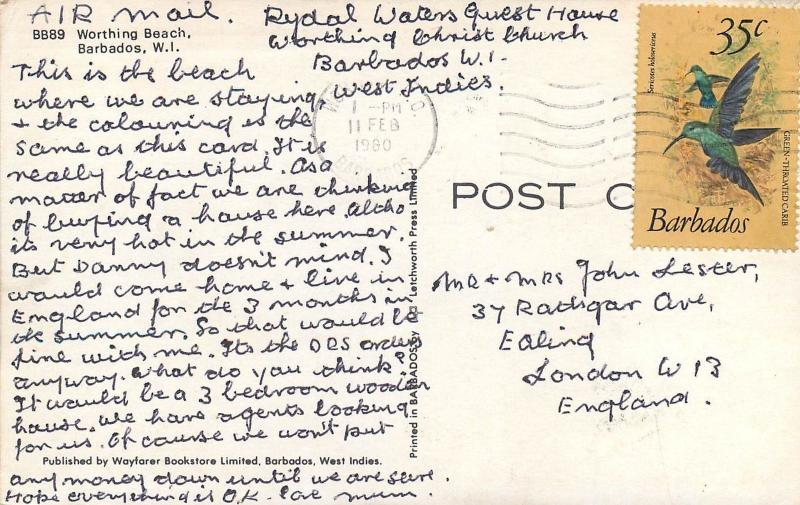 AIR MAIL.
Rydal Waters Guest House
Worthing Christ Church
Barbados W.I.
West Indies.
BB89 Worthing Beach,
Barbados, W.I.
This is the beach
where we are staying,
+ the colouring is the
same as this card. It is
really beautiful. As a
matter of fact we are thinking
of buying a house here. Altho
its very hot in the summer.
But Danny doesn't mind. I
would come home + live in
England for the 3 months in
the summer. So that would be
fine with me. Its the DRS orders
anyway. What do you think?
It would be a 3 bedroom wooden
house. We have agents looking
for us. Of course we won't put
Published by Wayfarer Bookstore Limited, Barbados, West Indies.
any money down until we are sure.
Hope everything is O.K. Love Mum.
Printed in BARBADOS by Letchworth Press Limited
1 - PM
11 FEB
1980
BARBADOS
POST C
35c
Sericotes holosericeus
GREEN-THROATED CARIB
Barbados
MR + MRS John Lester,
37 Rathgar Ave,
Ealing
London W 13
England.